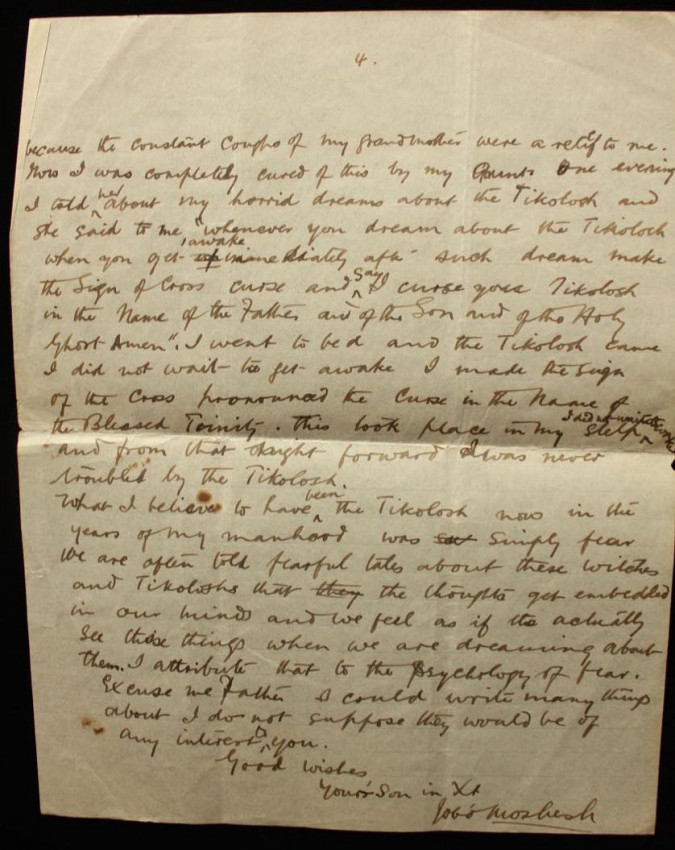 4.
because the constant coughs of my grandmother were a relief to me.
How I was completely cured of this by my Aunt. One evening
I told her about my horrid dreams about the Tikolosh and
she said to me "whenever you dream about the Tikoloch
when you get awake immediately after such dream make
the Sign of Cross curse and say I curse you Tikolosh
in the Name of the Father and of the Son and of the Holy
Ghost Amen". I went to bed and the Tikolosh came
I did not wait to get awake I made the Sign
of the Cross pronounced the Curse in the Name of
the Blessed Trinity. this took place in my sleep I did not wait to
and from that night forward I was never
troubled by the Tikolosh.
What I believe to have been the Tikolosh now in the
years of my manhood was simply fear
We are often told fearful tales about these witches
and Tikoloshs that they the thoughts get embedded
in our minds and we feel as if we actually
see these things when we are dreaming about
them. I attribute that to the Psychology of fear.
Excuse me Father I could write many things
about I do not suppose they would be of
any interest to you.
Good wishes
Yours Son in Xt
Moshesh